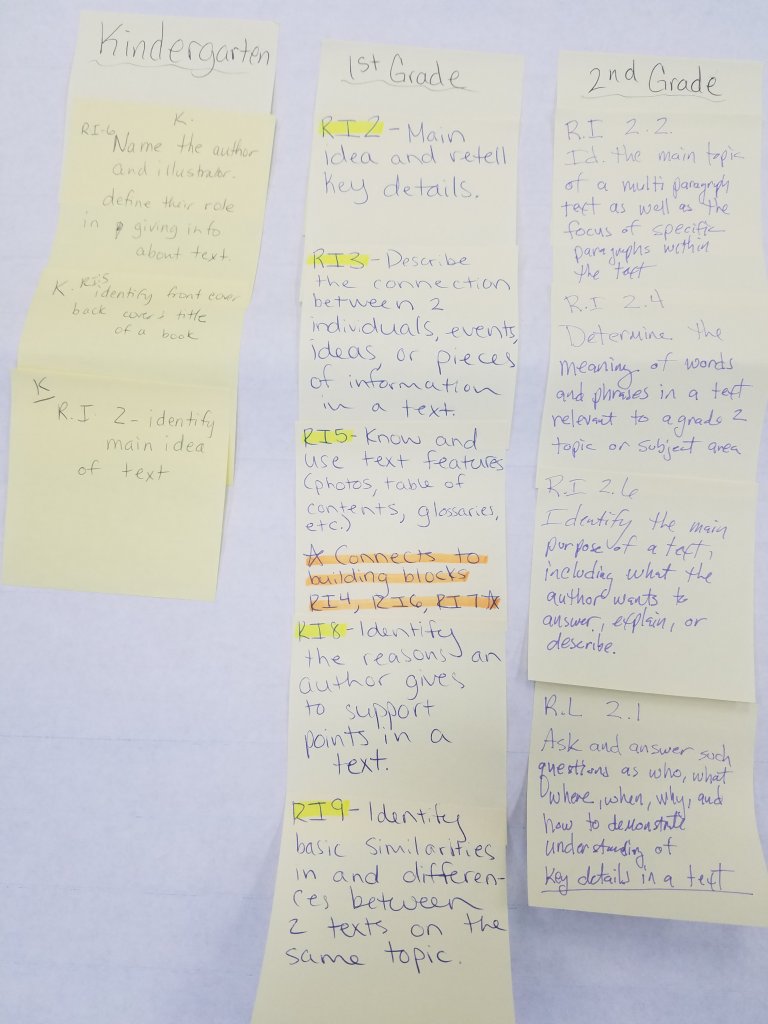 Kindergarten
K.
RI-6 Name the author
and illustrator.
define their role
in giving info
about text.
K. RI:5 identify front cover
back cover & title
of a book
K
R.I 2- identify
main idea
of text
1st Grade
RI2 - Main
idea and retell
key details.
RI3 - Describe
the connection
between 2
individuals, events,
ideas, or pieces
of information
in a text.
RI5 - Know and
use text features
(photos, table of
contents, glossaries,
etc.)
☆ Connects to
building blocks
RI4, RI6, RI7 ☆
RI8 - Identify
the reasons an
author gives
to support
points in a
text.
RI9 - Identify
basic similarities
in and differen-
ces between
2 texts on the
same topic.
2nd Grade
R.I 2.2
Id. the main topic
of a multi paragraph
text as well as the
focus of specific
paragraphs within
the text
R.I 2.4
Determine the
meaning of words
and phrases in a text
relevant to a grade 2
topic or subject area
R.I 2.6
Identify the main
purpose of a text,
including what the
author wants to
answer, explain, or
describe.
R.L 2.1
Ask and answer such
questions as who, what
where, when, why, and
how to demonstrate
understanding of
key details in a text